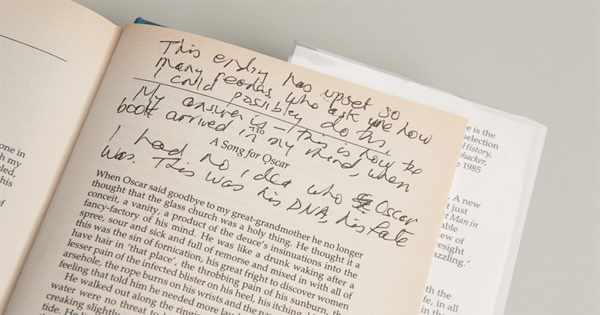 This ending has upset so
many readers, who ask me how
I could possibly do this.
My answer is – this is how the
book arrived into my mind, when
I had no idea who Oscar
was. This was his DNA, his fate
A Song for Oscar
When Oscar said goodbye to my great-grandmother he no longer
thought that the glass church was a holy thing. He thought it a
conceit, a vanity, a product of the deuce's insinuations into the
fancy-factory of his mind. He was like a drunk waking after a
spree, sour and sick and full of remorse and mixed in with all of
this was the sin of fornication, his great fright to discover women
have hair in 'that place', the throbbing pain of his sunburn, the
lesser pain of the infected blister on his heel, his itching
arsehole, the rope burns on his wrists and the
feeling that told him he needed more
He walked out along the
water were no threat to
creaking slightly
tide. He
one in
his
is the
History,
1985
A new
just
Man in
of
of
life, in all